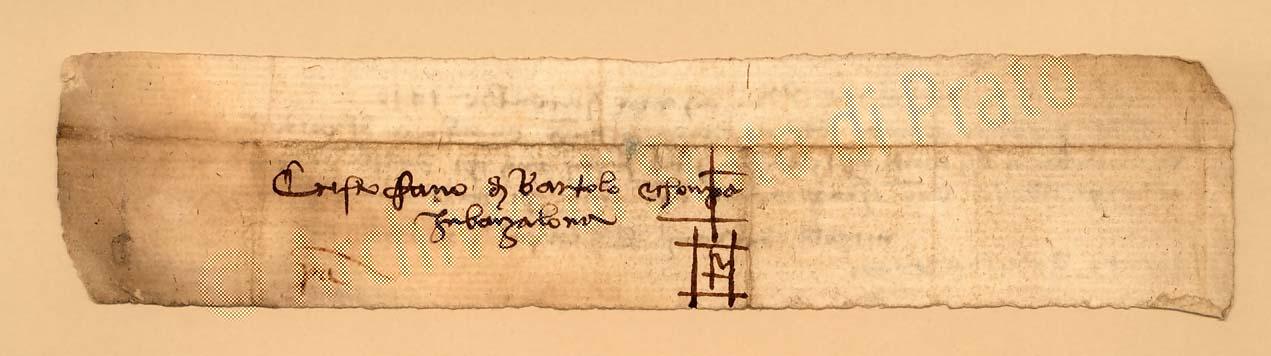 Cristofano di Bartolo e chonpa
in barzalona
© Archivio di Stato di Prato